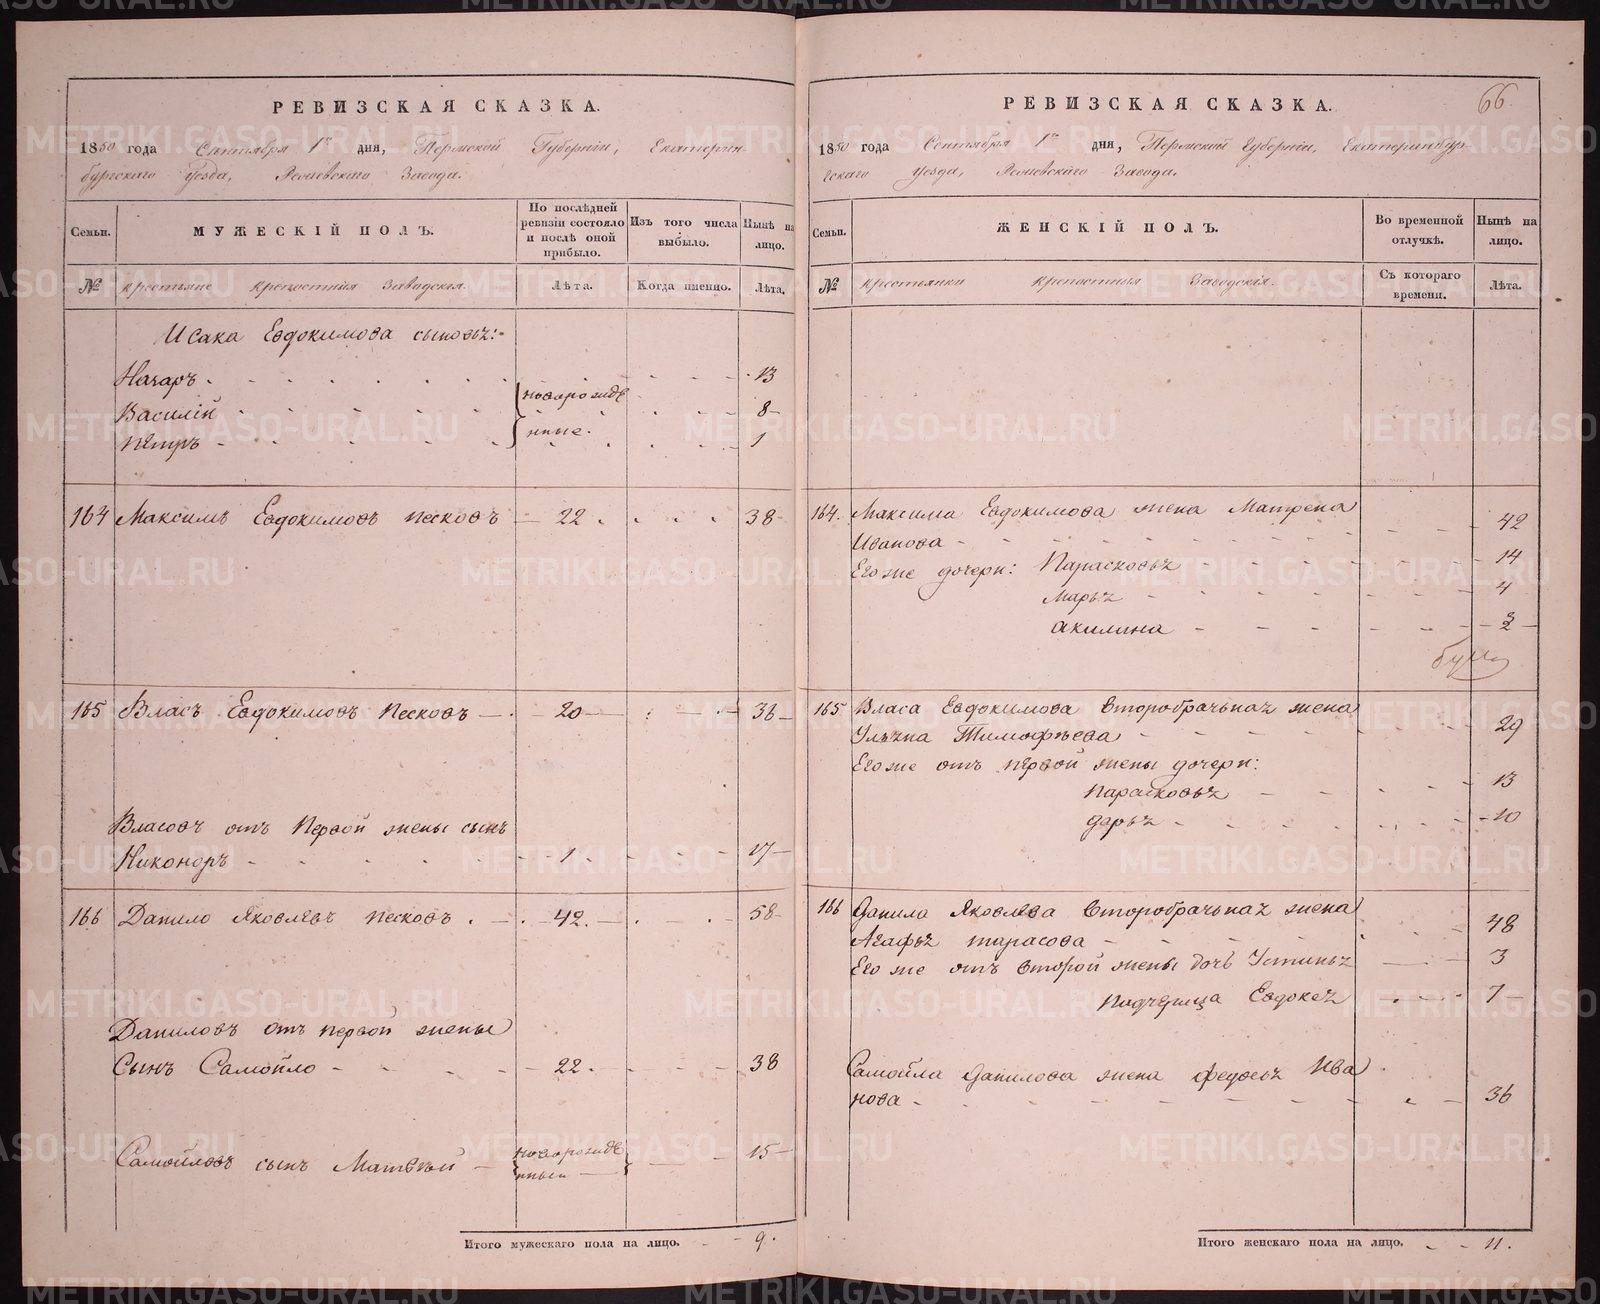 РЕВИЗСКАЯ СКАЗКА.
1850 года Сентября 1го дня, Пермской Губерніи, Екатерин-
бургскаго Уезда, Завода.
Семьи.
МУЖЕСКІЙ ПОЛЪ.
По послѣдней ревизіи состояло и послѣ оной прибыло.
Изъ того числа выбыло.
Нынѣ на лицо.
№
крестьяне крепостныя Заводскія.
Лѣта.
Когда именно.
Лѣта.
Исака Евдокимова сыновья:
Назаръ 13
Василій новорожде 8
Петръ нные. 1
164 Максимъ Евдокимовъ Песковъ 22 38
165 Власъ Евдокимовъ Песковъ 20 36
Власовъ отъ Первой жены сынъ
Никоноръ 1 17
166 Данило Яковлевъ Песковъ 42. 58
Даниловъ отъ первой жены
Сынъ Самойло 22. 38
Самойловъ сынъ Матвѣй новорожде нный 15
Итого мужескаго пола на лицо. 9.
66
РЕВИЗСКАЯ СКАЗКА.
1850 года Сентября 1го дня, Пермской Губерніи, Екатеринбур-
гскаго Уезда, Завода.
Семьи.
ЖЕНСКІЙ ПОЛЪ.
Во временной отлучкѣ.
Нынѣ на лицо.
№
крестьянки крепостныя Заводскія.
Съ котораго времени.
Лѣта.
164. Максима Евдокимова жена Матрена
Иванова 42
Его же дочери: Парасковья 14
Марья 4
Акилина 2
165 Власа Евдокимова второбрачьная жена
Ульяна Тимофѣева 29
Его же отъ первой жены дочери:
Парасковья 13
Дарья 10
166 Данила Яковлева второбрачьная жена
Агафья Тарасова 48
Его же отъ второй жены дочь Устинья 3
Падчерица Евдокея 7
Самойла Данилова жена Федосья Ива
нова 36
Итого женскаго пола на лицо. 11.
METRIKI.GASO-URAL.RU